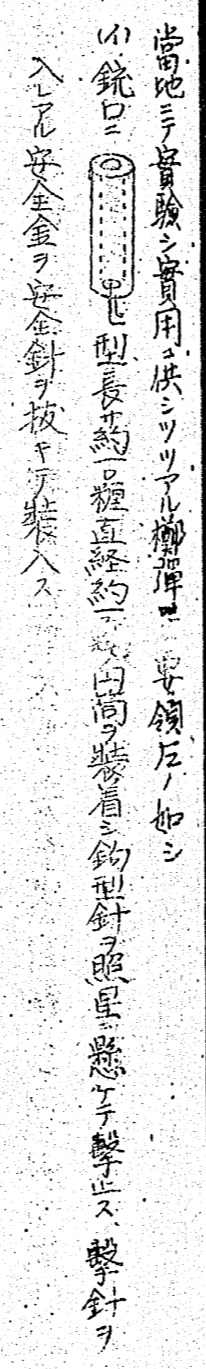 當地ニテ實驗シ實用ニ供シツツアル擲彈 要領左ノ如シ
(イ)銃口ニ 型長サ約一〇糎直経約 円筒ヲ装着シ鈎型針ヲ照星ニ懸ケテ撃止ス、撃針ヲ
入レアル安全金ヲ安全針ヲ抜キテ装入ス